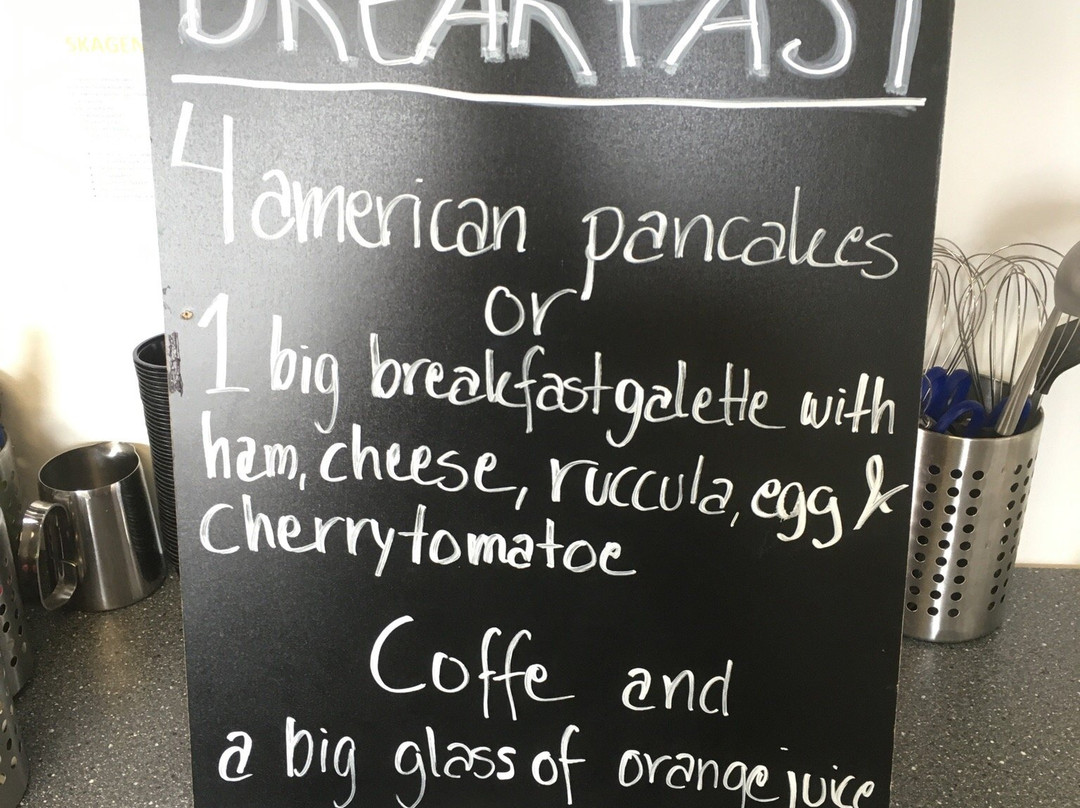 SKAGEN
BREAKFAST
4 american pancakes
or
1 big breakfastgalette with
ham, cheese, ruccula, egg &
Cherrytomatoe
Coffe and
a big glass of orange juice